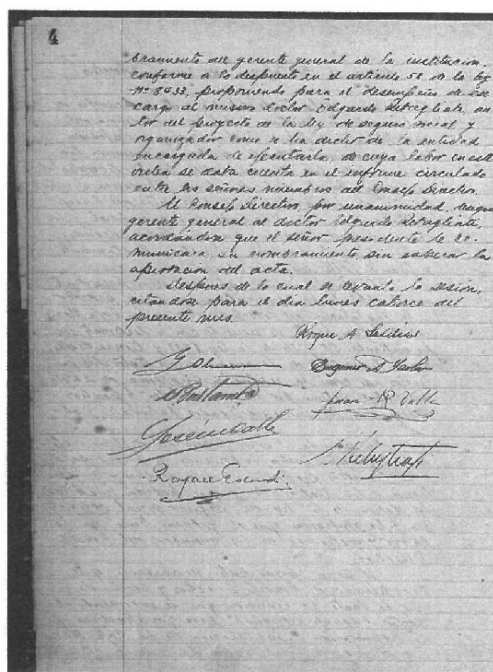 4
bramiento del gerente general de la institucion,
conforme a lo dispuesto en el artículo 58 de la ley
Nº 8433, proponiendo para el desempeño de ese
cargo al mismo doctor Edgardo Rebagliati, au-
tor del proyecto de la ley de seguro social y
organizador como se ha dicho de la entidad
encargada de ejecutarla, de cuya labor en este
orden se data cuenta en el informe circulado
entre los señores miembros del Consejo Directivo.
El Consejo Directivo por unanimidad,
gerente general al doctor Edgardo Rebagliati,
acordándose que el señor presidente le co-
municara su nombramiento, sin esperar la
aprobación del acta.
Despues de lo cual se levantó la sesión,
citándose para el día lunes catorce del
presente mes.
Roque A Saldías